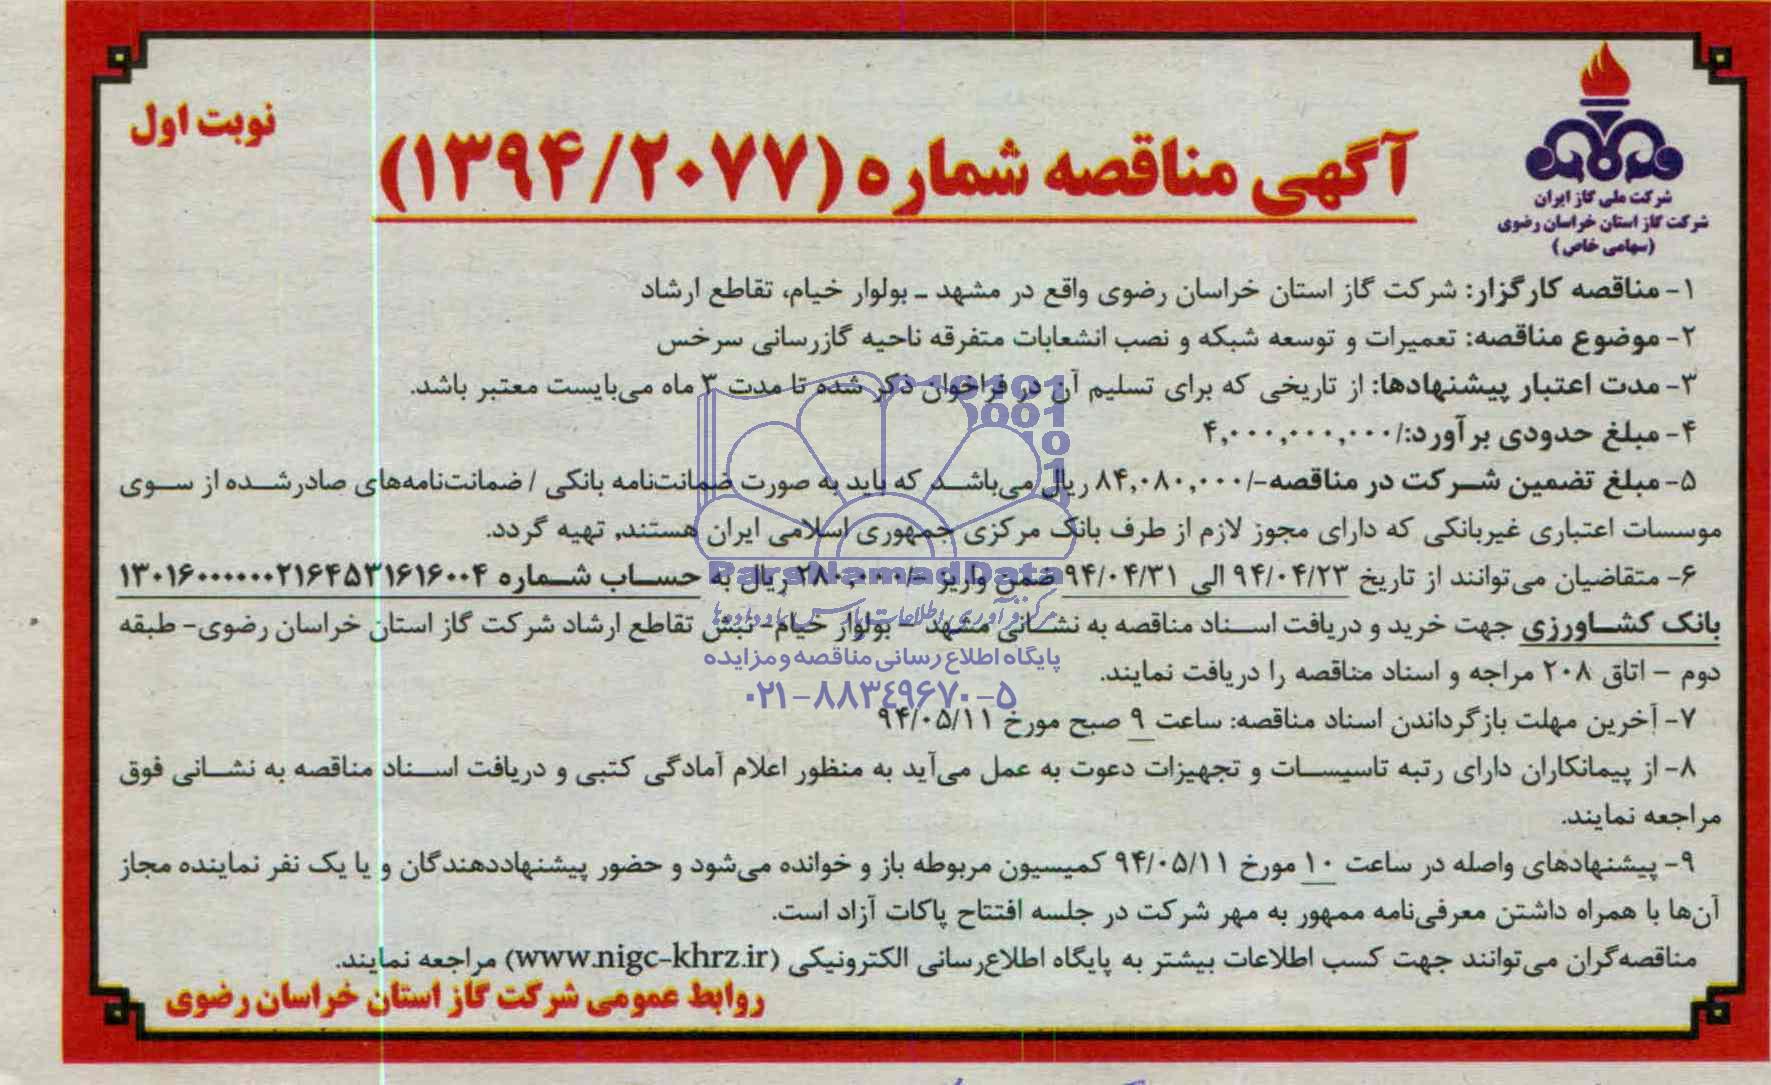 نوبت اول
آگهی مناقصه شماره (۱۳۹۴/۲۰۷۷)
شرکت ملی گاز ایران
شرکت گاز استان خراسان رضوی
(سهامی خاص)
۱- مناقصه کارگزار: شرکت گاز استان خراسان رضوی واقع در مشهد ـ بولوار خیام، تقاطع ارشاد
۲- موضوع مناقصه: تعمیرات و توسعه شبکه و نصب انشعابات متفرقه ناحیه گازرسانی سرخس
۳- مدت اعتبار پیشنهادها: از تاریخی که برای تسلیم آن در فراخوان ذکر شده تا مدت ۳ ماه می‌بایست معتبر باشد.
۴- مبلغ حدودی برآورد:/۴,۰۰۰,۰۰۰,۰۰۰
۵- مبلغ تضمین شرکت در مناقصه-/۸۴,۰۸۰,۰۰۰ ریال می‌باشد که باید به صورت ضمانت‌نامه بانکی / ضمانت‌نامه‌های صادرشده از سوی
موسسات اعتباری غیربانکی که دارای مجوز لازم از طرف بانک مرکزی جمهوری اسلامی ایران هستند، تهیه گردد.
۶- متقاضیان می‌توانند از تاریخ ۹۴/۰۴/۲۳ الی ۹۴/۰۴/۳۱ ضمن واریز -/۲۸۰,۰۰۰ ریال به حساب شماره ۱۳۰۱۶۰۰۰۰۰۰۰۲۱۶۴۵۳۱۶۱۶۰۰۴
بانک کشاورزی جهت خرید و دریافت اسناد مناقصه به نشانی مشهد – بولوار خیام- نبش تقاطع ارشاد شرکت گاز استان خراسان رضوی- طبقه
دوم – اتاق ۲۰۸ مراجه و اسناد مناقصه را دریافت نمایند.
۷- آخرین مهلت بازگرداندن اسناد مناقصه: ساعت ۹ صبح مورخ ۹۴/۰۵/۱۱
۸- از پیمانکاران دارای رتبه تاسیسات و تجهیزات دعوت به عمل می‌آید به منظور اعلام آمادگی کتبی و دریافت اسناد مناقصه به نشانی فوق
مراجعه نمایند.
۹- پیشنهادهای واصله در ساعت ۱۰ مورخ ۹۴/۰۵/۱۱ کمیسیون مربوطه باز و خوانده می‌شود و حضور پیشنهاددهندگان و یا یک نفر نماینده مجاز
آن‌ها با همراه داشتن معرفی‌نامه ممهور به مهر شرکت در جلسه افتتاح پاکات آزاد است.
مناقصه‌گران می‌توانند جهت کسب اطلاعات بیشتر به پایگاه اطلاع‌رسانی الکترونیکی (www.nigc-khrz.ir) مراجعه نمایند.
روابط عمومی شرکت گاز استان خراسان رضوی
ParsNamadData
مرکز فرآوری اطلاعات پارس نماد داده‌ها
پایگاه اطلاع رسانی مناقصه و مزایده
۰۲۱-۸۸۳۴۹۶۷۰-۵